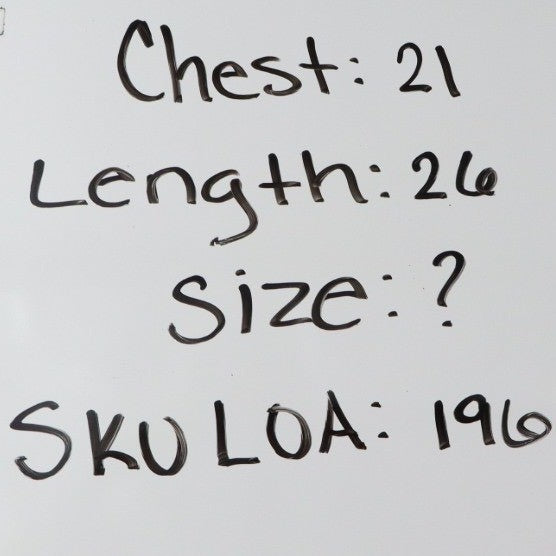 Chest: 21
Length: 26
Size: ?
SKU LOA: 196